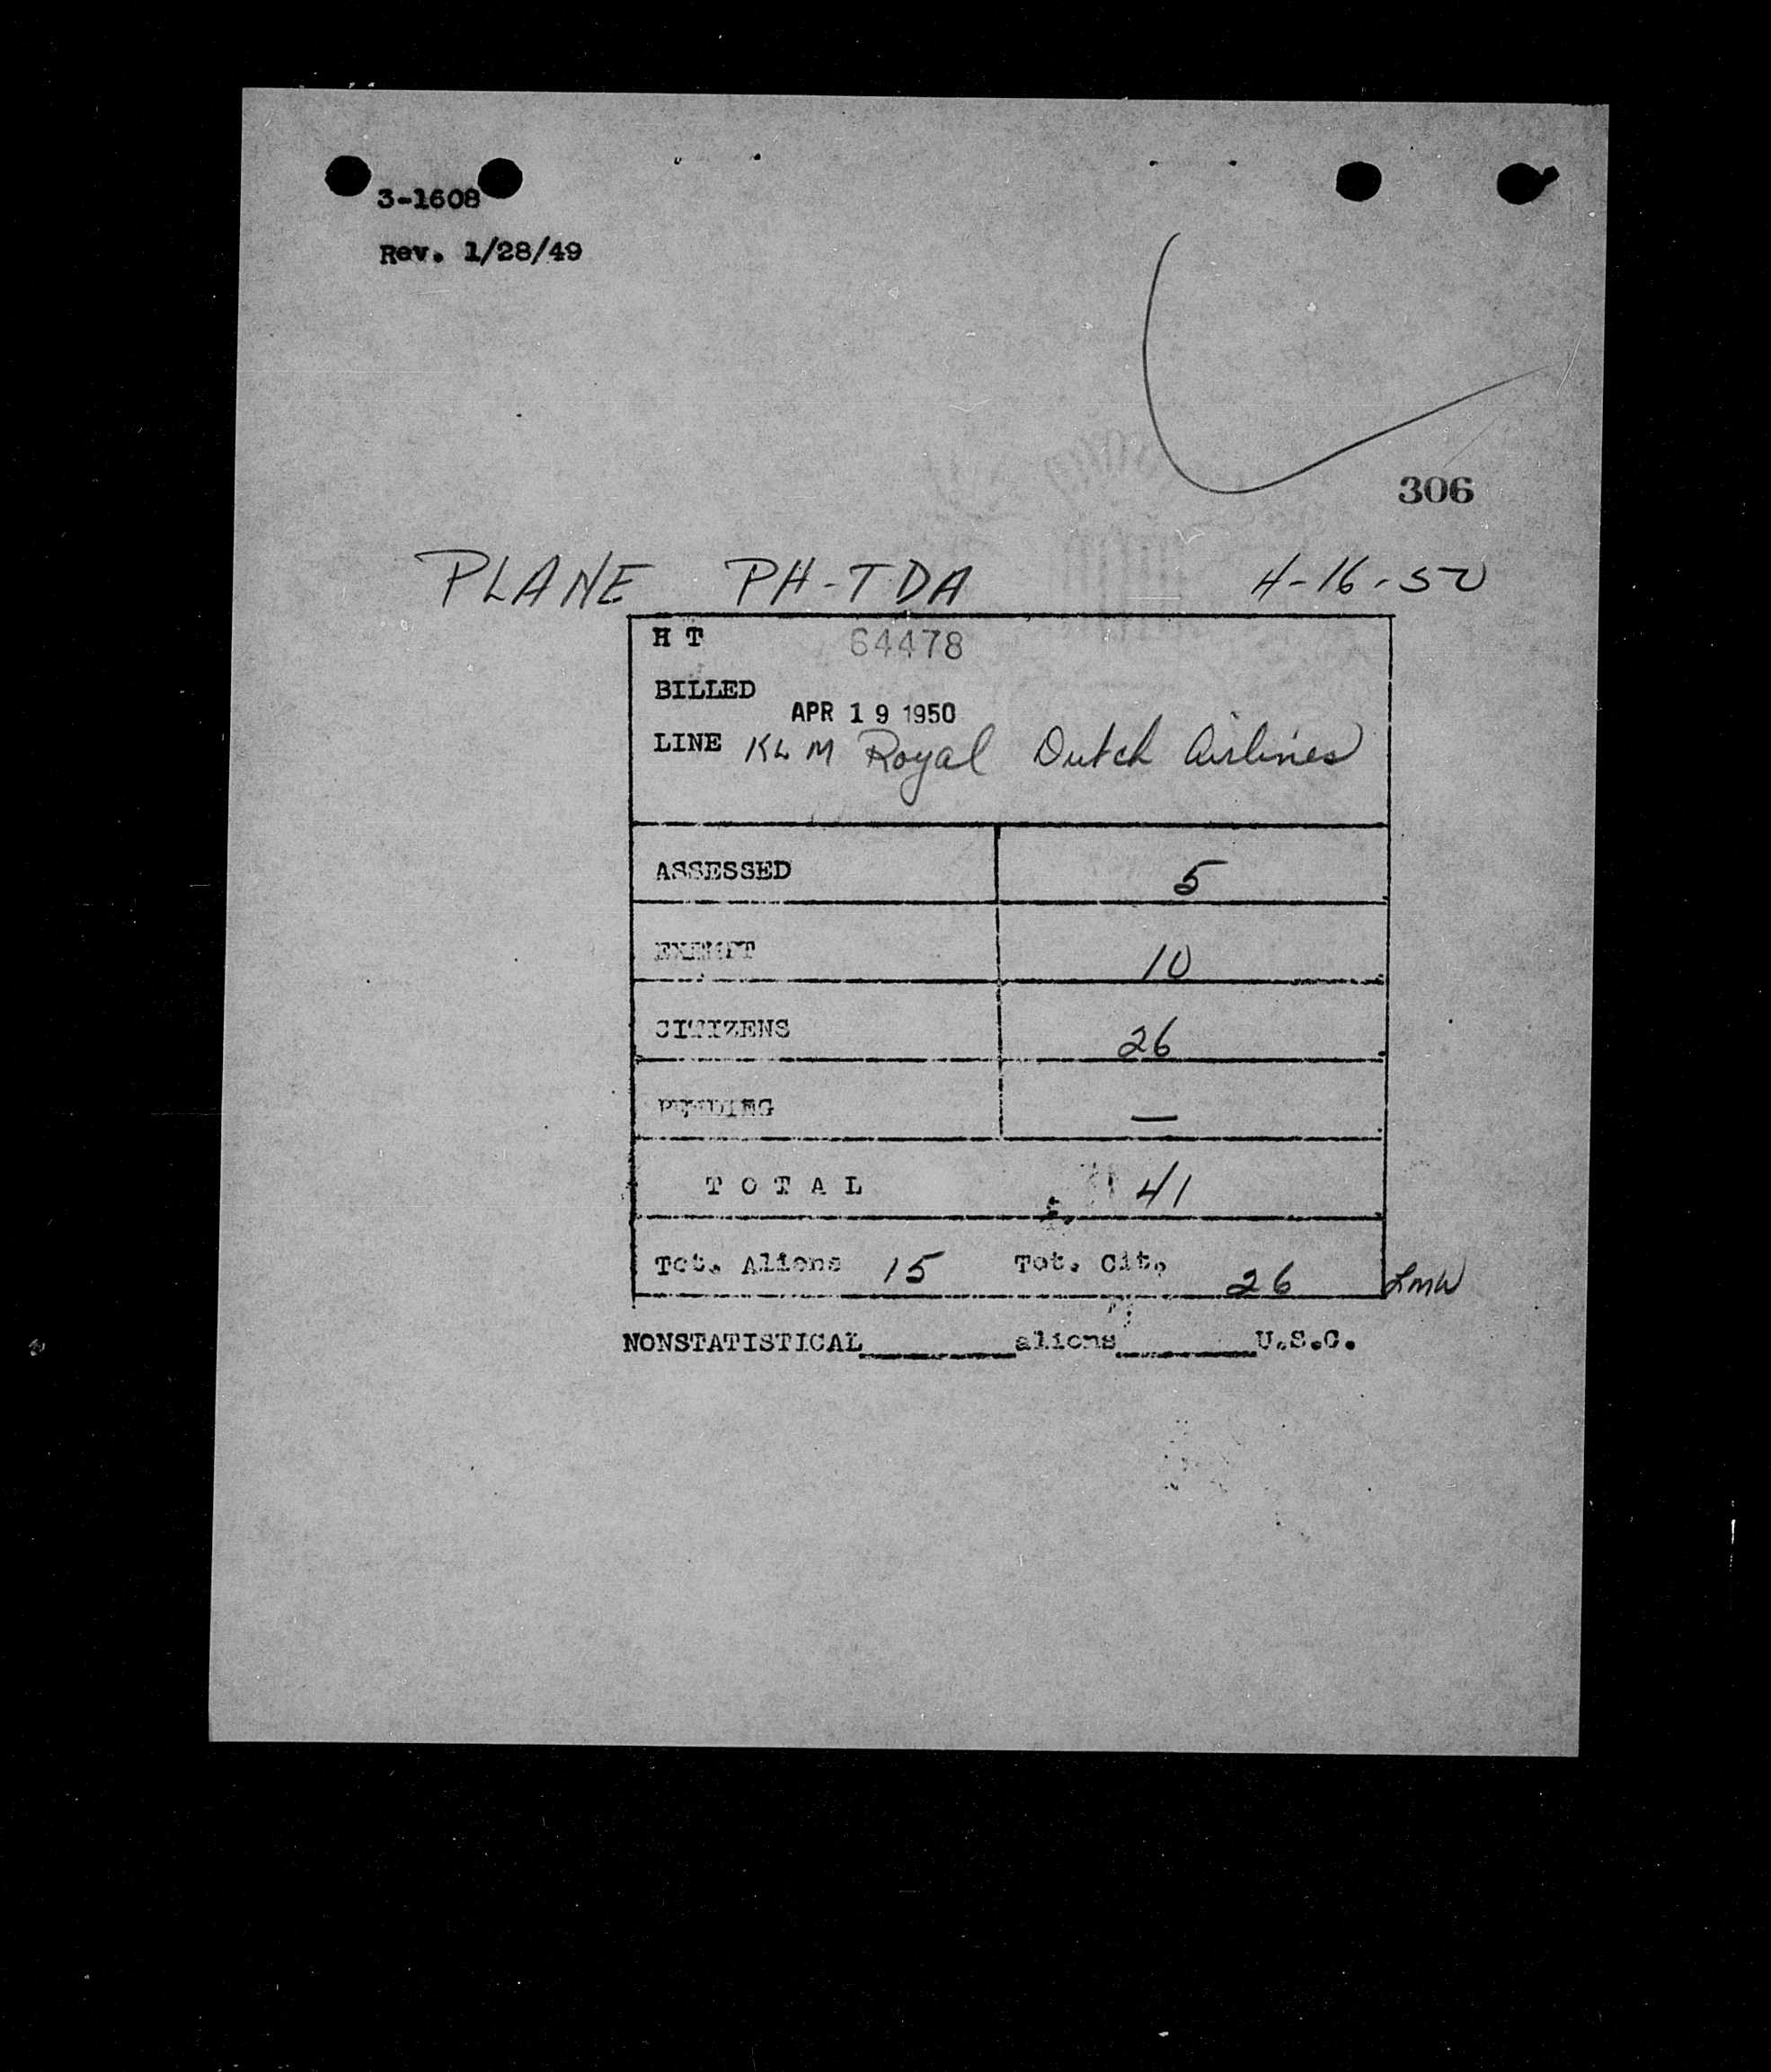 3-1608
Rev. 1/28/49
306
PLANE PH-TDA 4-16-50
H T 64478
BILLED
APR 19 1950
LINE KLM Royal Dutch Airlines
ASSESSED 5
EXEMPT 10
CITIZENS 26
PENDING —
T O T A L 41
Tot. Aliens 15 Tot. Cit. 26 LMW
NONSTATISTICAL________aliens________U.S.C.